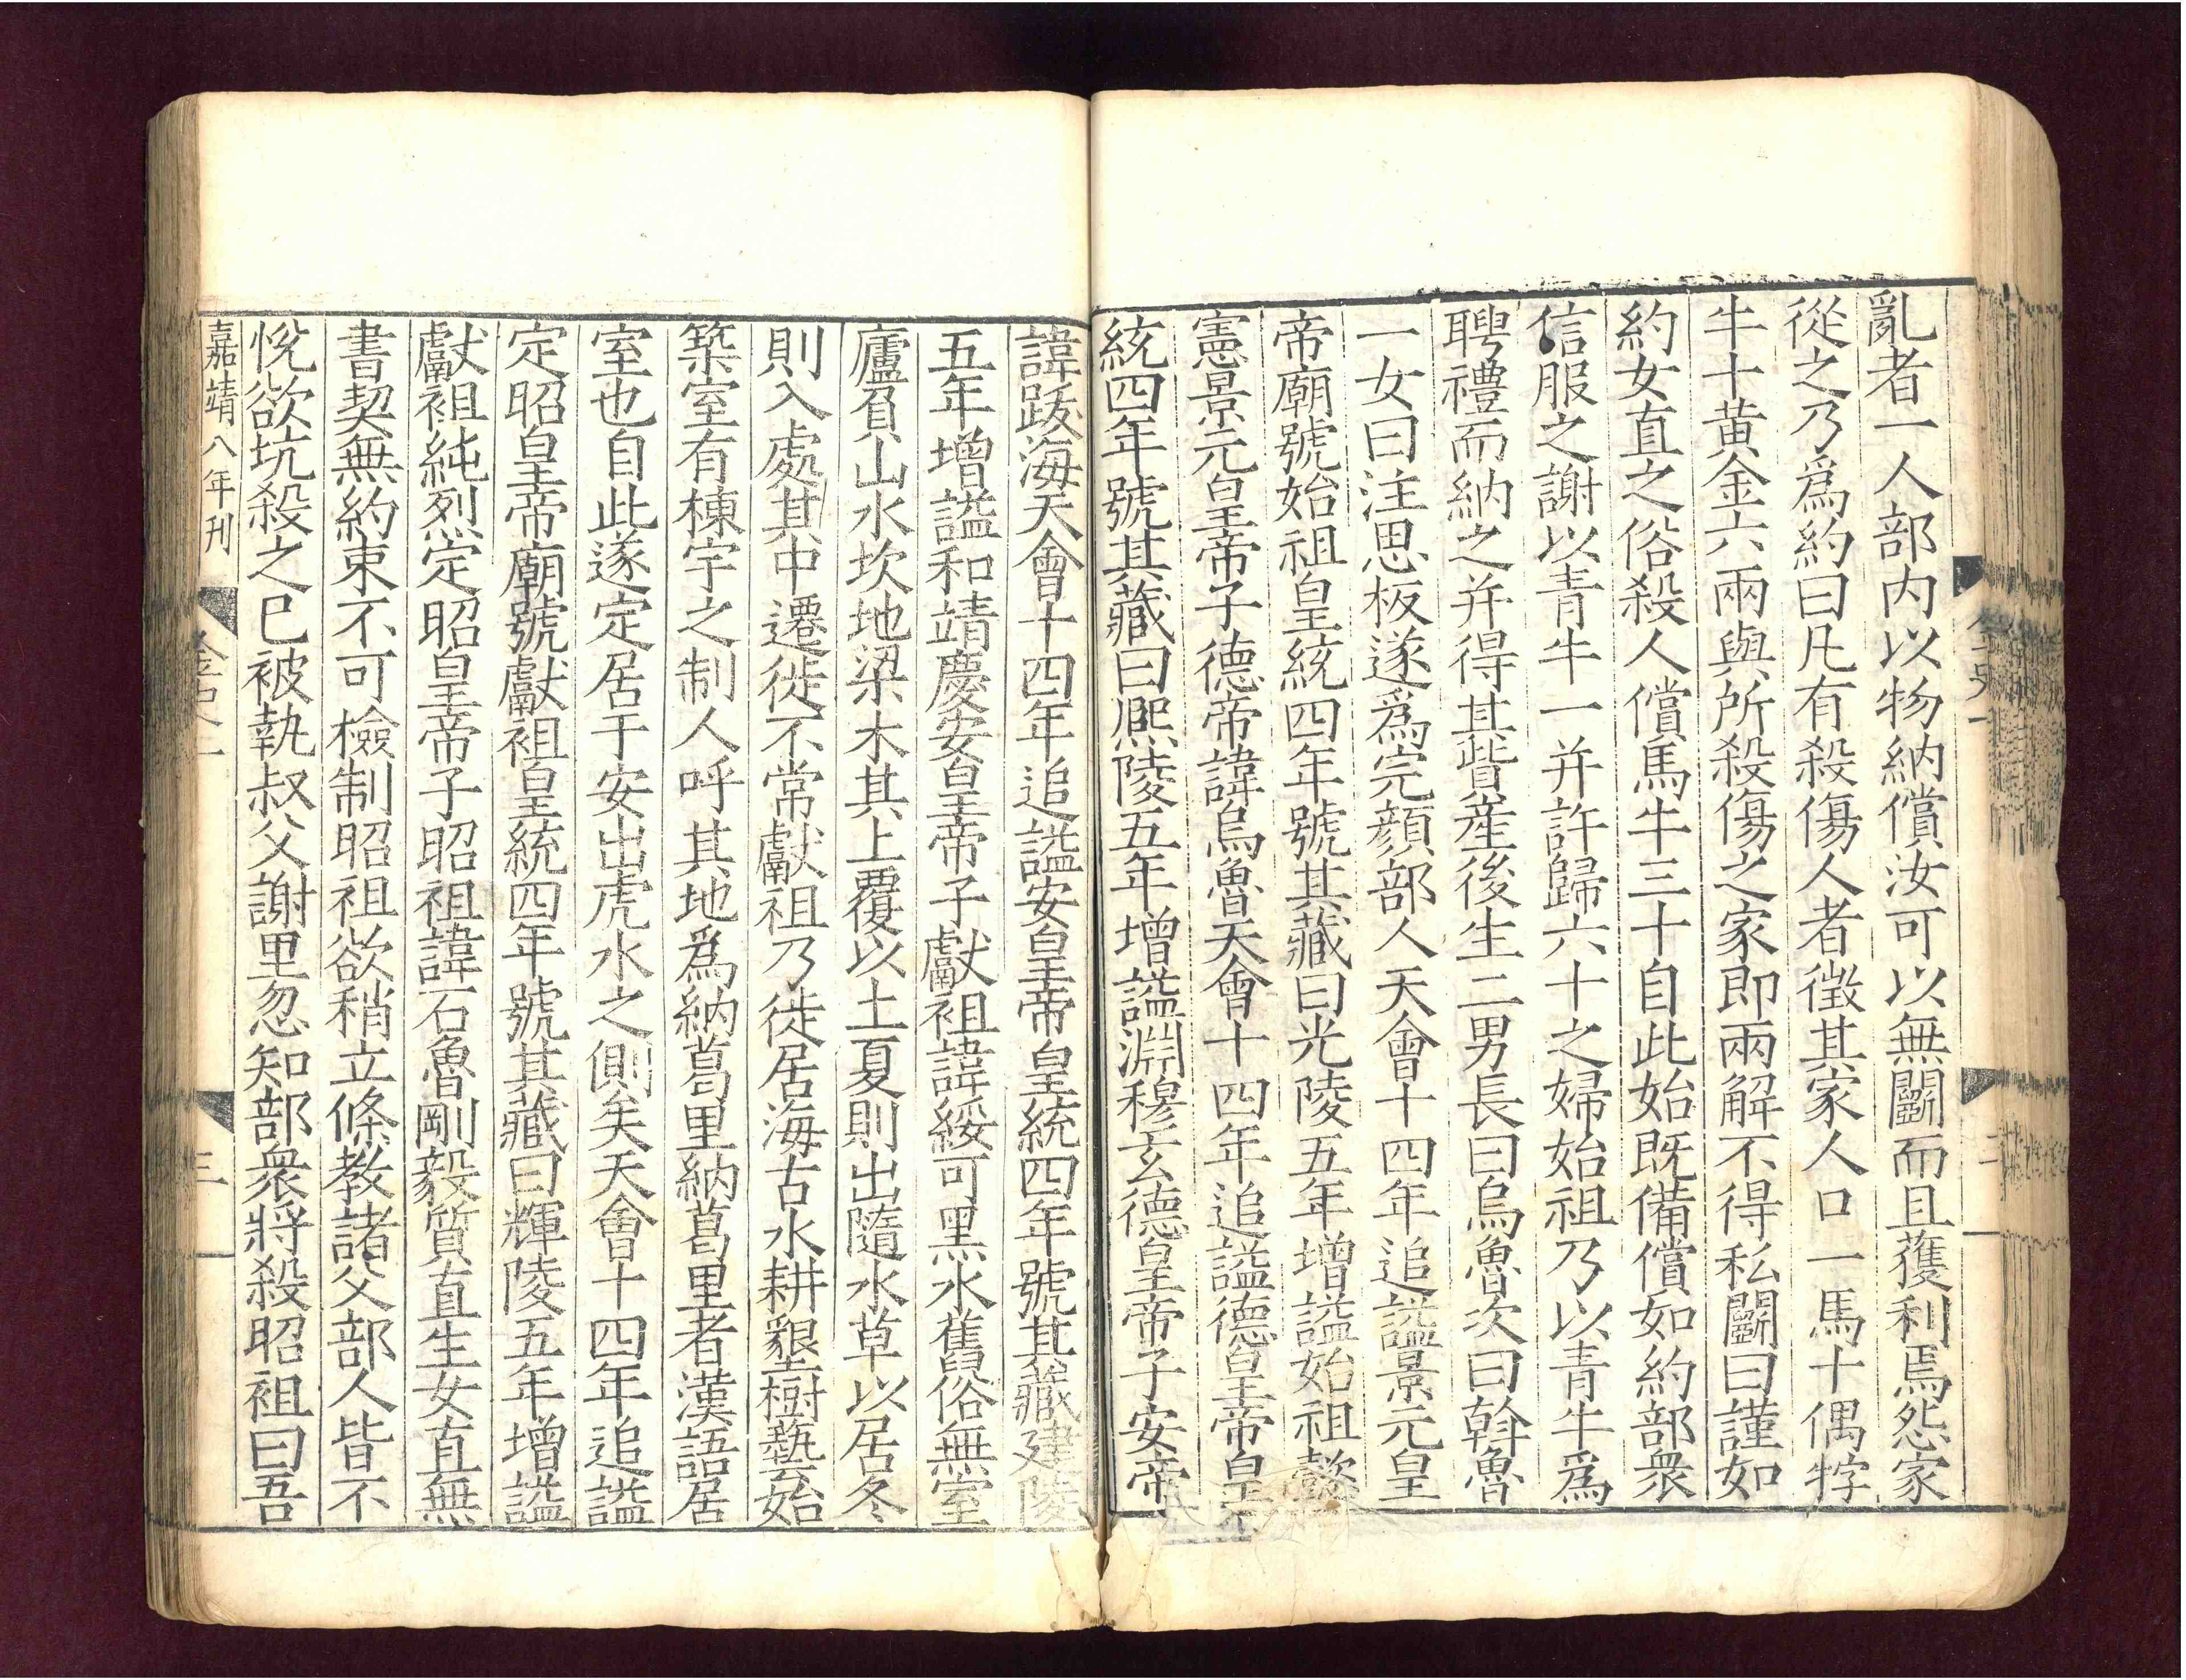 亂者一人部内以物納償汝可以無鬭而且獲利焉怨家
從之乃爲約曰凡有殺傷人者徵其家人口一馬十偶牸
牛十黄金六兩與所殺傷之家即兩解不得私鬭曰謹如
約女直之俗殺人償馬牛三十自此始既備償如約部衆
信服之謝以青牛一并許歸六十之婦始祖乃以青牛爲
聘禮而納之并得其貲産後生二男長曰烏魯次曰斡魯
一女曰注思板遂爲完顔部人天會十四年追謚景元皇
帝廟號始祖皇統四年號其藏曰光陵五年增謚始祖懿
憲景元皇帝子德帝諱烏魯天會十四年追謚德皇帝皇
統四年號其藏曰熈陵五年增謚淵穆玄德皇帝子安帝
諱跋海天會十四年追謚安皇帝皇統四年號其藏建陵
五年增謚和靖慶安皇帝子獻祖諱綏可黑水舊俗無室
廬負山水坎地梁木其上覆以土夏則出隨水草以居冬
則入處其中遷徙不常獻祖乃徙居海古水耕墾樹藝始
築室有棟宇之制人呼其地爲納葛里納葛里者漢語居
室也自此遂定居于安出虎水之側矣天會十四年追謚
定昭皇帝廟號獻祖皇統四年號其藏曰輝陵五年增謚
獻祖純烈定昭皇帝子昭祖諱石魯剛毅質直生女直無
書契無約束不可檢制昭祖欲稍立條教諸父部人皆不
悅欲坑殺之已被執叔父謝里忽知部衆將殺昭祖曰吾
嘉靖八年刊
金史一
三